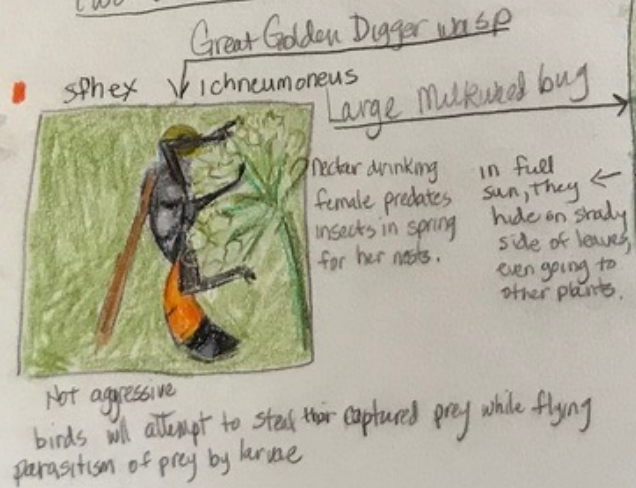 Great Golden Digger wasp
Sphex ichneumoneus
Large Milkweed bug
Nectar drinking
female predates
insects in spring
for her nests.
in full
sun, they
hide on shady
side of leaves,
even going to
other plants.
Not aggressive
birds will attempt to steal their captured prey while flying
parasitism of prey by larvae